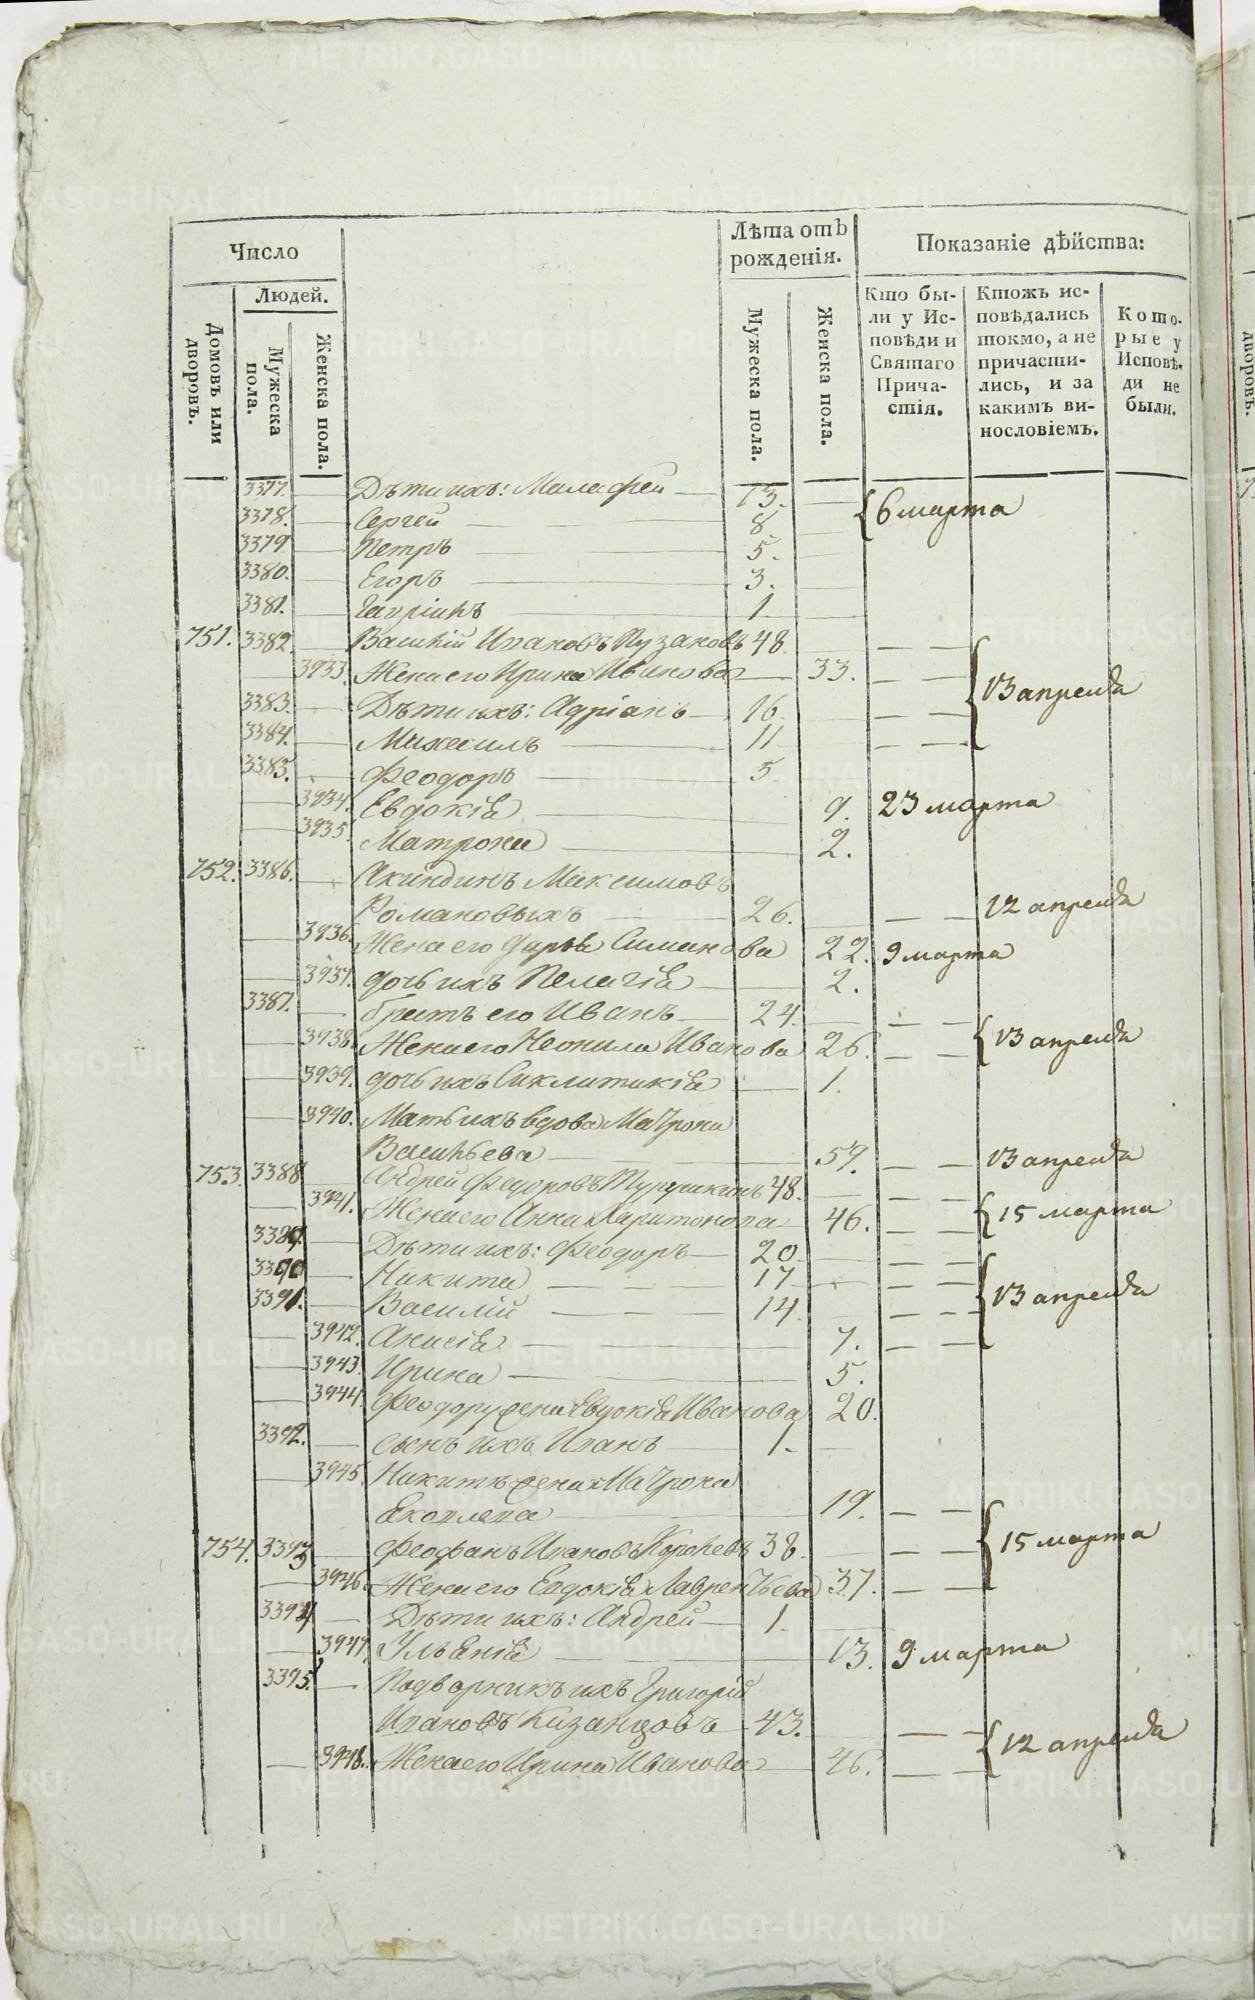 Число
Людей.
Домовъ или дворовъ.
Мужеска пола.
Женска пола.
Лѣта отъ рожденія.
Мужеска пола.
Женска пола.
Показаніе дѣйства:
Кто бы-
ли у Ис-
повѣди и
Святаго
Прича-
стія.
Ктожъ ис-
повѣдались
токмо, а не
причасти-
лись, и за
какимъ ви-
нословіемъ.
Кото-
рые у
Исповѣ-
ди не
были.
3377. Дѣти ихъ: Малафей 13.
{ 6 марта
3378. Сергей 8.
3379 Петръ 5.
3380. Егоръ 3.
3381. Гавріилъ 1
751. 3382 Василій Ивановъ Пузановъ 48
3933. Жена его Ирина Иванова 33.
{ 13 апреля
3383. Дѣти ихъ: Адріанъ 16
3384. Михаилъ 11
3385. Феодоръ 5
3934. Евдокія 9. 23 марта
3935. Матрона 2.
752. 3386. Акиндинъ Максимовъ
Романовыхъ 26. 12 апреля
3936. Жена его Дарья Симанова 22. 9 марта
3937. дочь ихъ Пелагія 2.
3387. братъ его Иванъ 24.
{ 13 апреля
3938. Жена его Неонила Иванова 26.
3939. дочь ихъ Сиклитикія 1.
3940. Мать ихъ вдова Матрона
Васильева 59. 13 апреля
753. 3388 Андрей Федоровъ 48.
{ 15 марта
3941. Жена его Анна Харитонова 46.
3389. Дѣти ихъ: Феодоръ 20
3390 Никита 17
{ 13 апреля
3391. Василій 14
3942. Анисія 7.
3943. Ирина 5.
3944. Феодору жена Евдокія Иванова 20.
3392. сынъ ихъ Иванъ 1.
3945 Никитѣ жена Матрона
Яковлева 19.
{ 15 марта
754. 3393 Феофанъ Ивановъ 38
3946. Жена его Евдокія Лаврентьева 37.
3394 Дѣти ихъ: Андрей 1.
3947. Ульянія 13. 9 марта
3395 Подворникъ ихъ Григорій
Ивановъ Казанцовъ 43.
{ 12 апреля
3948. Жена его Ирина Иванова 46.